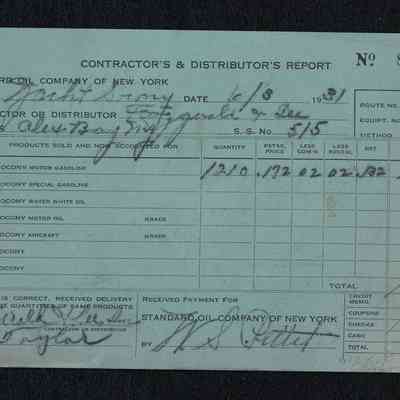 CONTRACTOR'S & DISTRIBUTOR'S REPORT
No 8
ARD OIL COMPANY OF NEW YORK
Yacht DATE 6/3 1931
ROUTE NO.
CTOR OR DISTRIBUTOR Fitzgerald & Lee
EQUIPT. NO.
Alex Bay NY S. S. No. 515
METHOD
PRODUCTS SOLD AND NOW ACCOUNTED FOR QUANTITY RETAIL PRICE LESS COM'N LESS RENTAL NET
SOCONY MOTOR GASOLINE 1210 .172 02 02 .132
SOCONY SPECIAL GASOLINE
SOCONY WATER WHITE OIL
SOCONY MOTOR OIL GRADE
SOCONY AIRCRAFT GRADE
SOCONY
SOCONY
TOTAL
IS CORRECT. RECEIVED DELIVERY
E QUANTITIES OF SAME PRODUCTS
RECEIVED PAYMENT FOR
STANDARD OIL COMPANY OF NEW YORK
CREDIT MEMO
COUPONS
CHECKS
CASH
TOTAL
CONTRACTOR OR DISTRIBUTOR
Taylor
BY W S Pettit